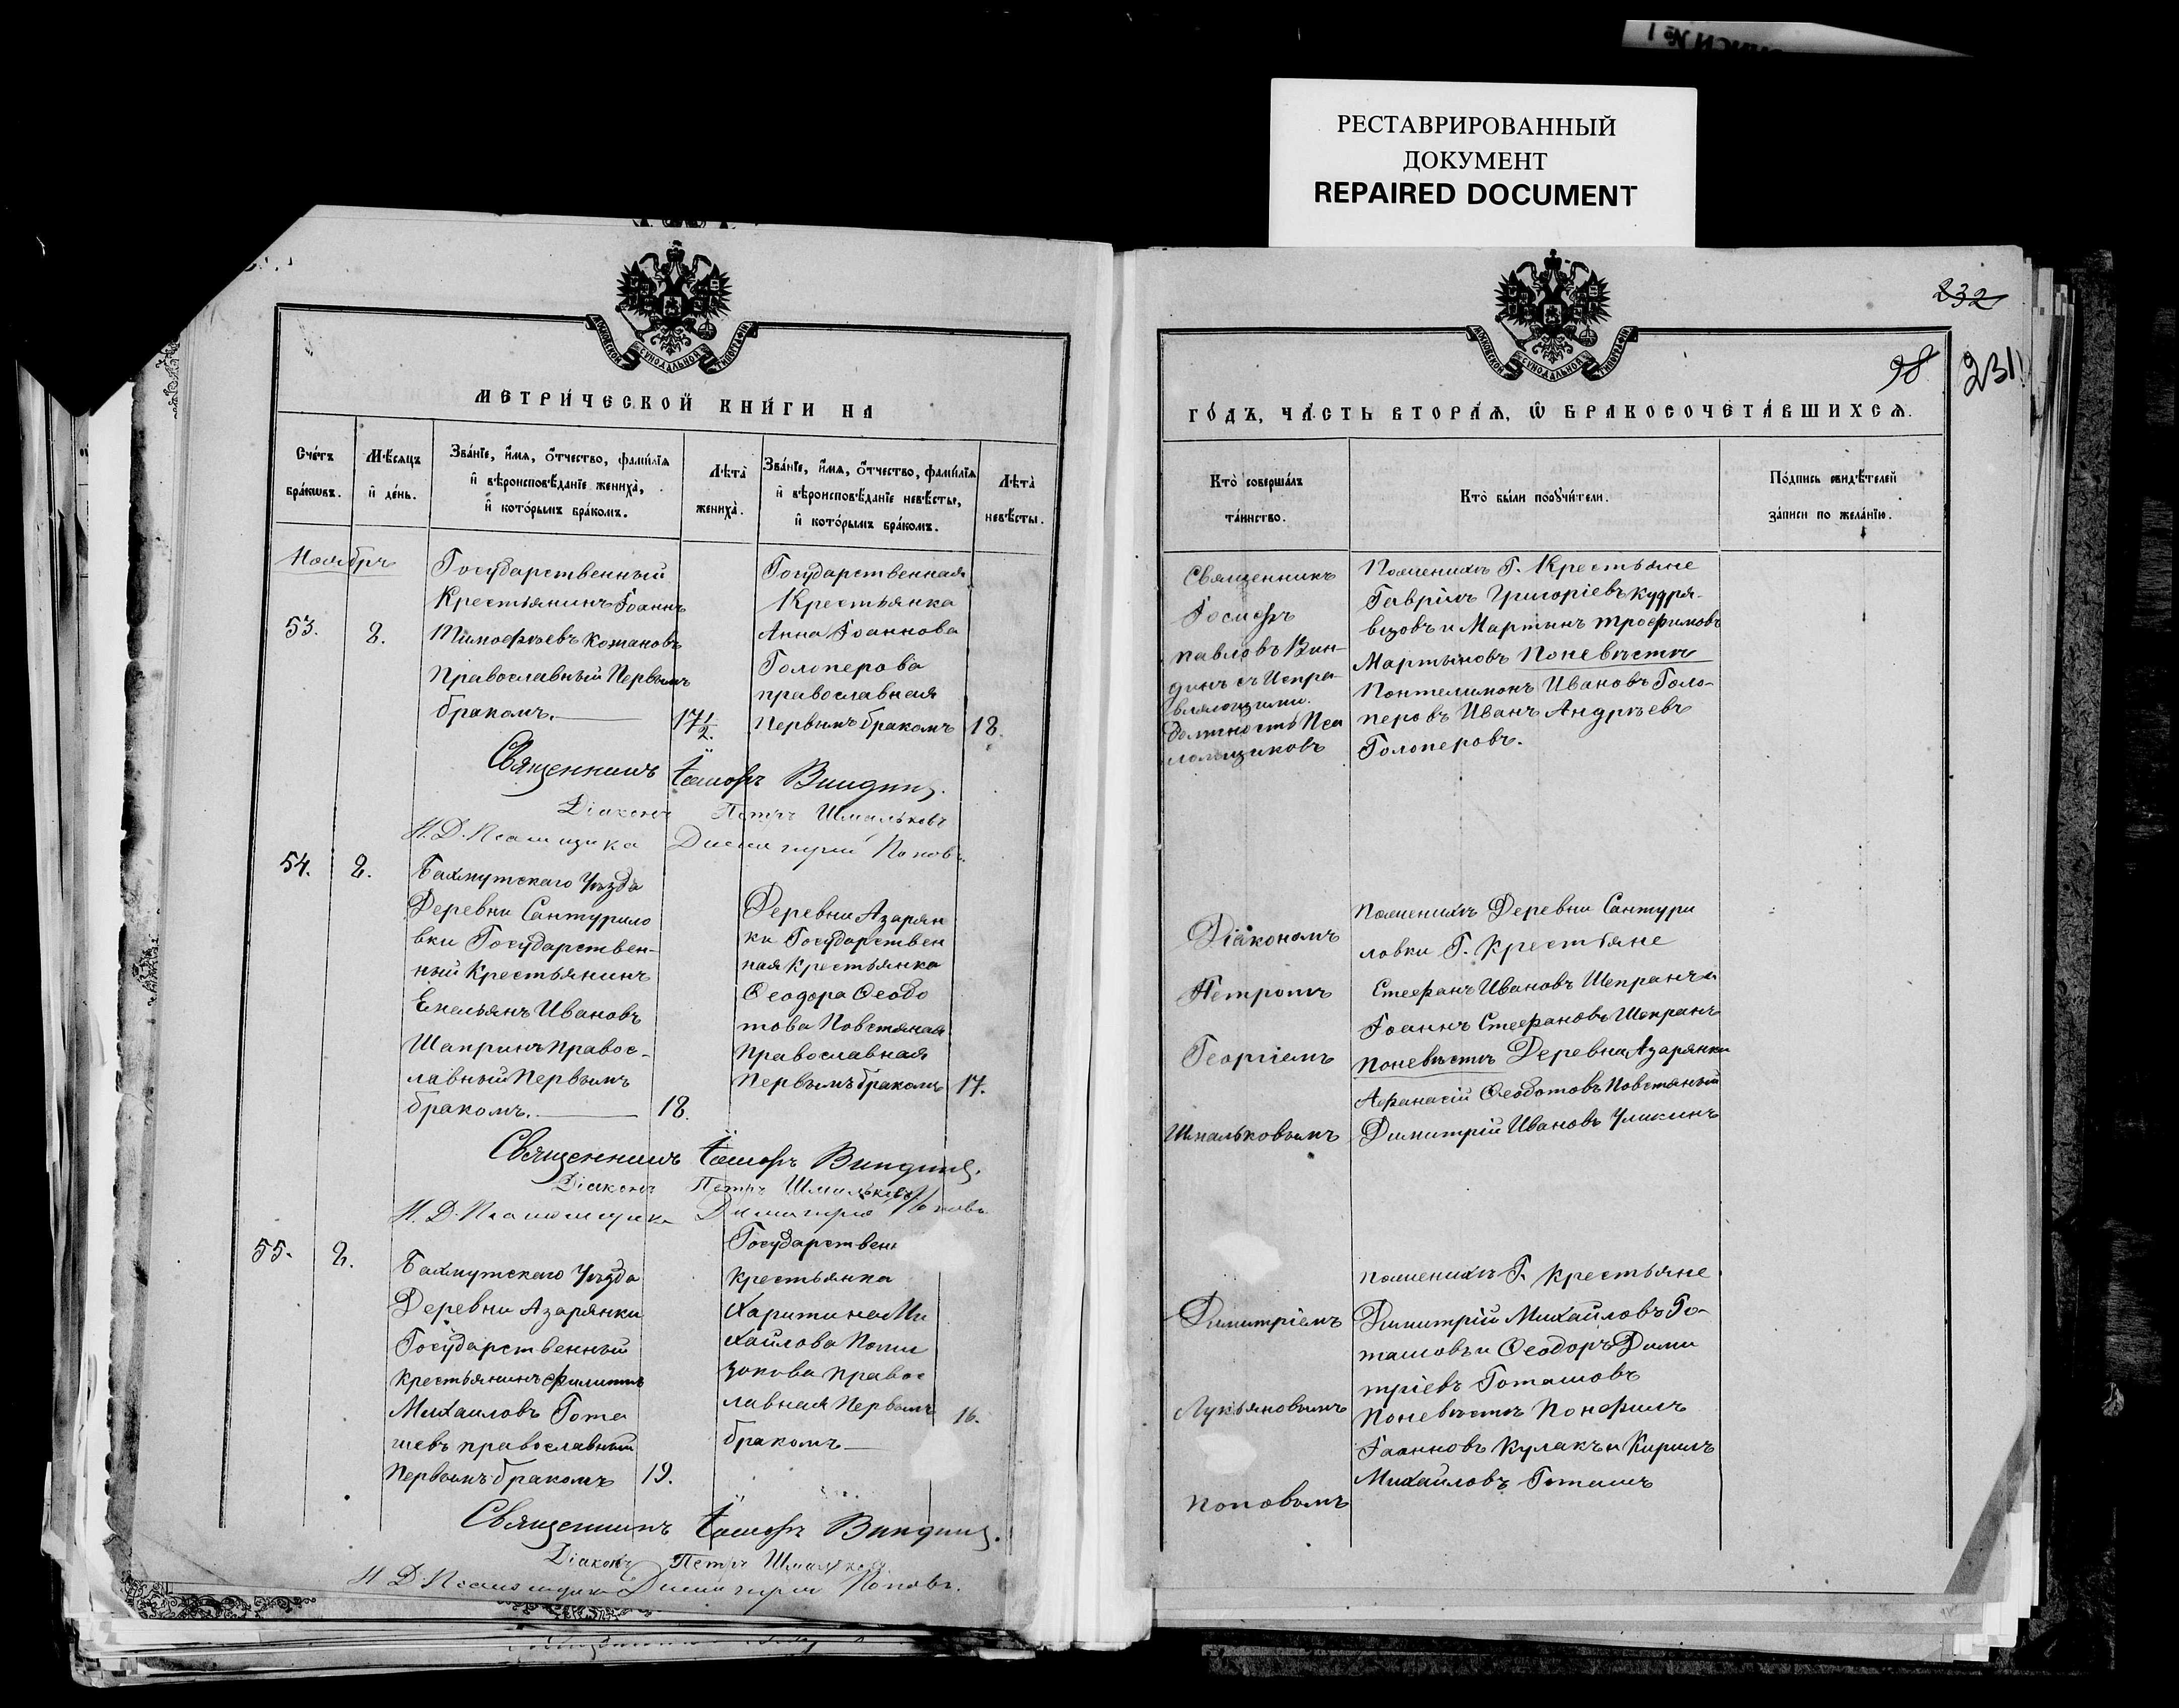 РЕСТАВРИРОВАННЫЙ
ДОКУМЕНТ
REPAIRED DOCUMENT
232
98
231
МОСКОВСКОЙ СУНОДАЛЬНОЙ ТИПОГРАФІИ
МЕТРИ́ЧЕСКОЙ КНИ́ГИ НА
Сче́тъ бра́кѡвъ.
Мѣ́сяцъ и де́нь.
Зва́нїе, и́мя, ѻ́тчество, фами́лїя
и вѣроисповѣ́данїе жениха̀,
и кото́рымъ бра́комъ.
Лѣ́та̀ жениха̀.
Зва́нїе, и́мя, ѻ́тчество, фами́лїя
и вѣроисповѣ́данїе невѣ́сты,
и кото́рымъ бра́комъ.
Лѣ́та̀ невѣ́сты.
Ноябрь
53.
8.
Государственный
Крестьянинъ Іоаннъ
Тимофѣевъ Кожановъ
Православный Первымъ
бракомъ.
17½.
Государственная
Крестьянка
Анна Іоаннова
Голоперова
православная
Первымъ бракомъ
18.
Священникъ Іосифъ Виндинъ.
Діаконъ Петръ Шмальковъ
И. Д. Псаломщика Димитрій Поповъ.
54.
8.
Бахмутскаго Уѣзда
Деревни Сантурило
вки Государствен-
ный Крестьянинъ
Емельянъ Ивановъ
Шапринъ Правос-
лавный Первымъ
бракомъ.
18.
Деревни Азарян
ки Государствен
ная Крестьянка
Ѳеодора Ѳеодо
това Повстяная
Православная
Первымъ бракомъ
17.
Священникъ Іосифъ Виндинъ.
Діаконъ Петръ Шмальковъ
И. Д. Псаломщика Димитрій Поповъ
55.
8.
Бахмутскаго Уѣзда
Деревни Азарянки
Государственный
крестьянинъ Филиппъ
Михаиловъ Гота
шевъ православный
Первымъ бракомъ
19.
Государствен
крестьянка
Харитина Ми
хайлова
правос
лавная Первымъ
бракомъ
16.
Священникъ Іосифъ Виндинъ.
Діаконъ Петръ Шмальковъ.
И. Д. Псаломщика Димитрій Поповъ.
МОСКОВСКОЙ СУНОДАЛЬНОЙ ТИПОГРАФІИ
ГО́ДЪ, ЧА́СТЬ ВТОРА́Я, Ѿ БРАКОСОЧЕТА́ВШИХСЯ.
Кто̀ соверша́лъ та́инство.
Кто̀ бы́ли порꙋчи́тели.
По́дпись свидѣ́телей за́писи по жела́нїю.
Священникъ
Іосифъ
Павловъ Вин-
динъ съ Испра-
вляющими
должность Пса
ломщиковъ
Поженихѣ Г. Крестьяне
Гавріилъ Григоріевъ Кудря-
вцовъ и Мартинъ Трофимовъ
Мартыновъ Поневѣстѣ
Понтелимонъ Ивановъ Голо-
перовъ Иванъ Андрѣевъ
Голоперовъ.
Діакономъ
Петромъ
Георгіемъ
Шмальковымъ
Поженихѣ Деревни Сантури
ловки Г. Крестьяне
Стефанъ Ивановъ Шепранъ и
Іоаннъ Стефановъ Шепранъ
Поневѣстѣ Деревни Азарянки
Афанасій Ѳеодотовъ Повстяный
Димитрій Ивановъ Уликинъ
Димитріемъ
Лукьяновымъ
Поповымъ
Поженихѣ Г. Крестьяне
Димитрій Михайловъ Го-
ташовъ и Ѳеодоръ Дими
тріевъ Готашовъ
Поневѣстѣ Понфилъ
Іоанновъ Кулакъ и Кирилъ
Михайловъ Готашъ